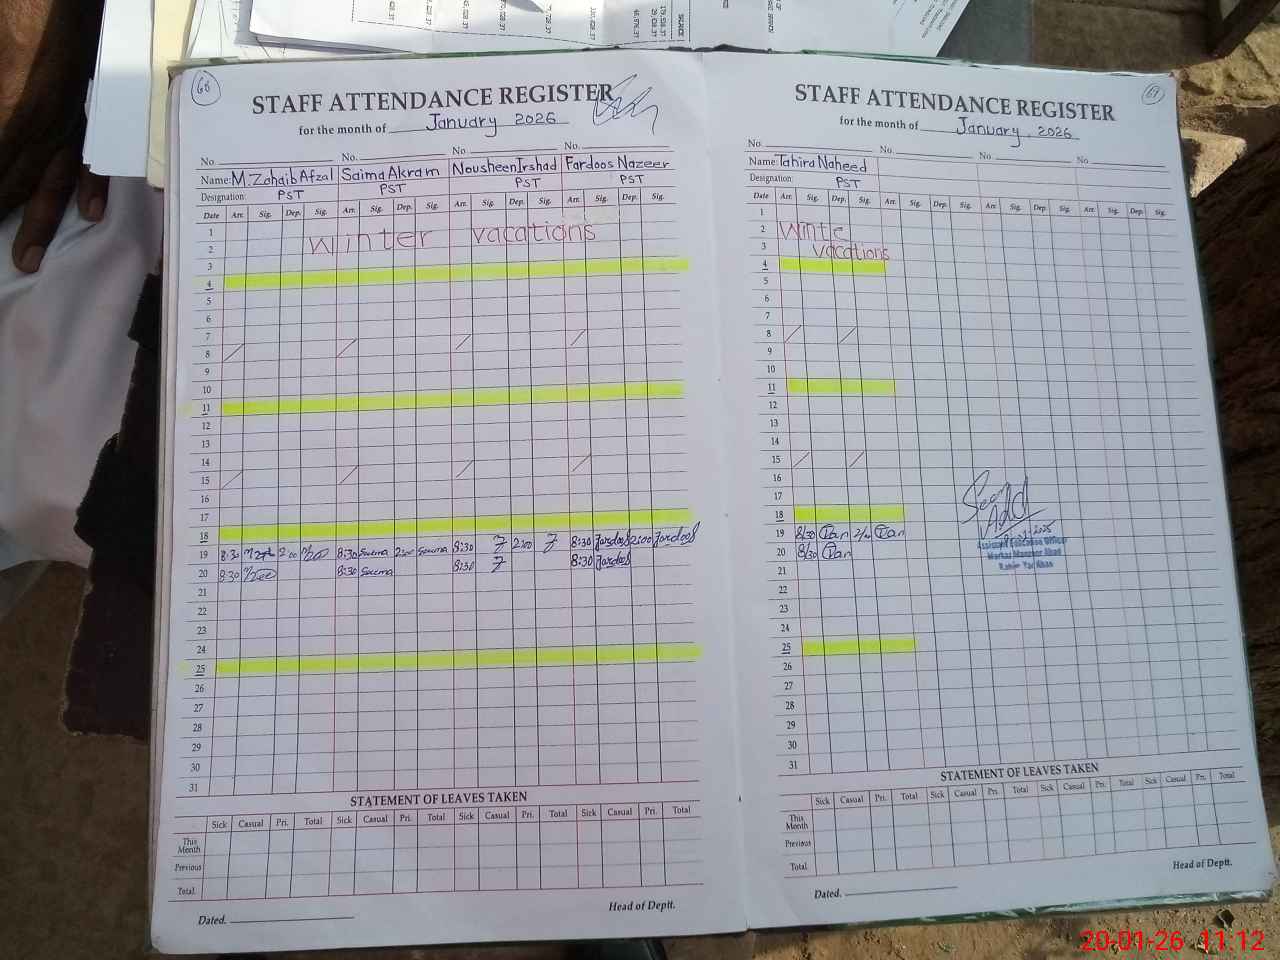 68
STAFF ATTENDANCE REGISTER
for the month of January 2026
No. No. No. No.
Name: M. Zohaib Afzal Saima Akram Nousheen Irshad Fardoos Nazeer
Designation: PST PST PST PST
Date Arr. Sig. Dep. Sig. Arr. Sig. Dep. Sig. Arr. Sig. Dep. Sig. Arr. Sig. Dep. Sig.
1
2 Winter vacations
3
4
5
6
7
8
9
10
11
12
13
14
15
16
17
18
19 8:30 2:00 8:30 Saema 2:00 Saema 8:30 2:00 8:30 Fardoos 2:00 Fardoos
20 8:30 8:30 Saema 8:30 8:30 Fardoos
21
22
23
24
25
26
27
28
29
30
31
STATEMENT OF LEAVES TAKEN
Sick Casual Pri. Total Sick Casual Pri. Total Sick Casual Pri. Total Sick Casual Pri. Total
This Month
Previous
Total
Dated. Head of Deptt.
69
STAFF ATTENDANCE REGISTER
for the month of January, 2026
No. No. No. No.
Name: Tahira Naheed
Designation: PST
Date Arr. Sig. Dep. Sig. Arr. Sig. Dep. Sig. Arr. Sig. Dep. Sig. Arr. Sig. Dep. Sig.
1
2 Winte
3 vacations
4
5
6
7
8
9
10
11
12
13
14
15
16
17
18
19 8/30
20 8/30
21
22
23
24
25
26
27
28
29
30
31
Assistant Education Officer
Markaz Manzoor Abad
Rahim Yar Khan
STATEMENT OF LEAVES TAKEN
Sick Casual Pri. Total Sick Casual Pri. Total Sick Casual Pri. Total Sick Casual Pri. Total
This Month
Previous
Total
Dated. Head of Deptt.
20-01-26 11:12